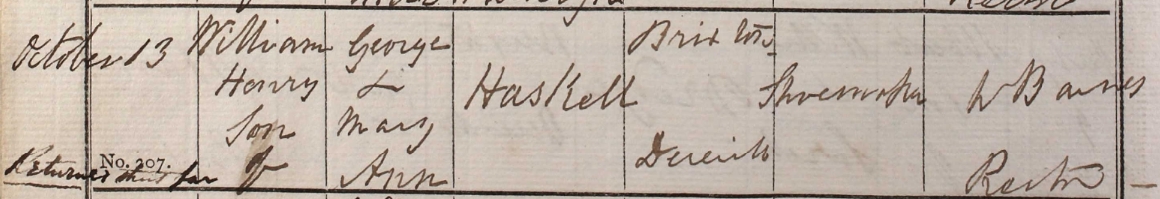 October 13
William
Henry
Son
of
George
&
Mary
Ann
Haskell
Brixton
Deverill
Shoemaker
W Barnes
Rector
No. 207.
Returned thus far